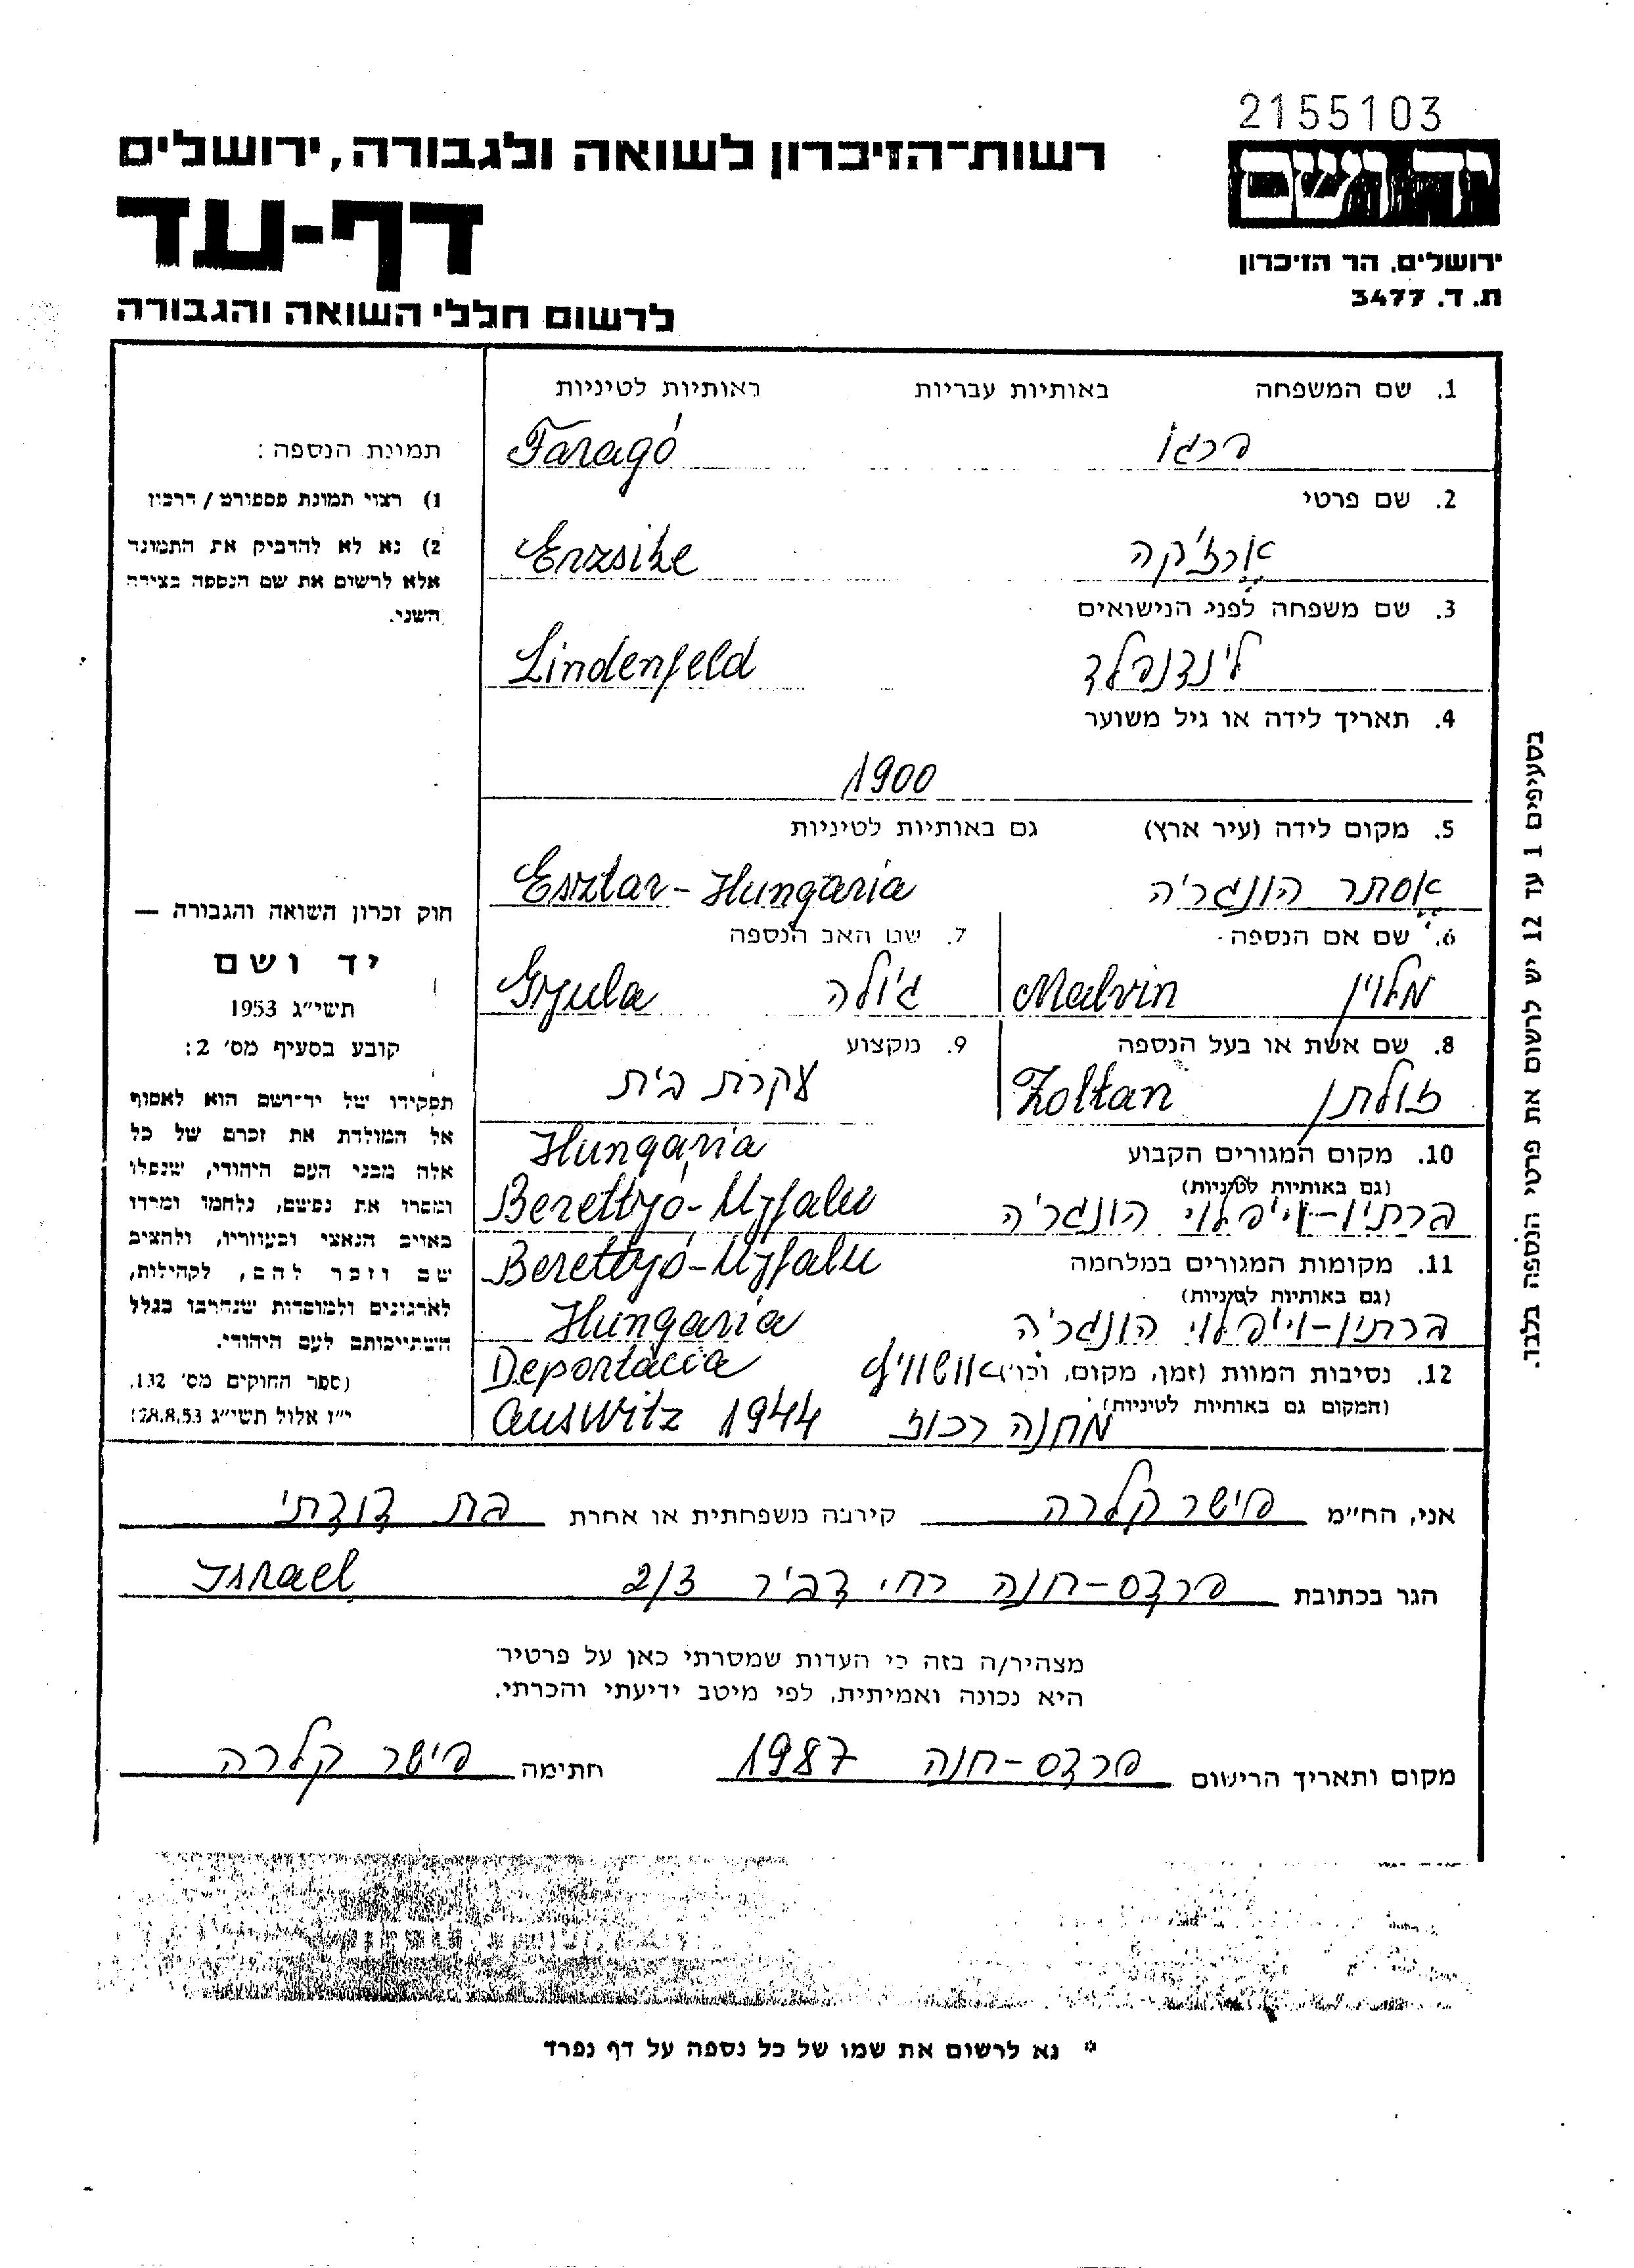 2155103
יד ושם
רשות-הזיכרון לשואה ולגבורה, ירושלים
דף-עד
ירושלים, הר הזיכרון
ת. ד. 3477
לרשום חללי השואה והגבורה
1. שם המשפחה באותיות עבריות באותיות לטיניות
פרגו Faragó
2. שם פרטי
ארז'קה Erzsike
3. שם משפחה לפני הנישואים
לינדנפלד Lindenfeld
4. תאריך לידה או גיל משוער
1900
5. מקום לידה (עיר ארץ) גם באותיות לטיניות
אסתר הונגריה Esztar - Hungaria
6. שם אם הנספה 7. שם האב הנספה
מלוין Malvin ג'ולה Gyula
8. שם אשת או בעל הנספה 9. מקצוע
זולתן Zoltan עקרת בית
10. מקום המגורים הקבוע Hungaria
(גם באותיות לטיניות)
ברתיו-וייפלוי הונגריה Berettyó-Ujfalu
11. מקומות המגורים במלחמה Berettyó-Ujfalu
(גם באותיות לטיניות)
ברתיו-וייפלוי הונגריה Hungaria
12. נסיבות המוות (זמן, מקום, וכו') אושוויץ Deportácia
(המקום גם באותיות לטיניות) מחנה רכוז Auswitz 1944
תמונת הנספה:
1) רצוי תמונת פספורט / דרכון
2) נא לא להדביק את התמונה
אלא לרשום את שם הנספה בצידה
השני.
חוק זכרון השואה והגבורה —
יד ושם
תשי"ג 1953
קובע בסעיף מס' 2:
תפקידו של יד-ושם הוא לאסוף
אל המולדת את זכרם של כל
אלה מבני העם היהודי, שנפלו
ומסרו את נפשם, נלחמו ומרדו
באויב הנאצי ובעוזריו, ולהציב
שם וזכר להם, לקהילות,
לארגונים ולמוסדות שנחרבו בגלל
השתייכותם לעם היהודי.
(ספר החוקים מס' 132,
י"ז אלול תשי"ג 28.8.53)
בסעיפים 1 עד 12 יש לרשום את פרטי הנספה בלבד.
אני, הח"מ פישר קלרה קירבה משפחתית או אחרת בת דודתי
הגר בכתובת פרדס-חנה רח' דביר 2/3 Israel
מצהיר/ה בזה כי העדות שמסרתי כאן על פרטיה
היא נכונה ואמיתית, לפי מיטב ידיעתי והכרתי.
מקום ותאריך הרישום פרדס-חנה 1987 חתימה פישר קלרה
* נא לרשום את שמו של כל נספה על דף נפרד